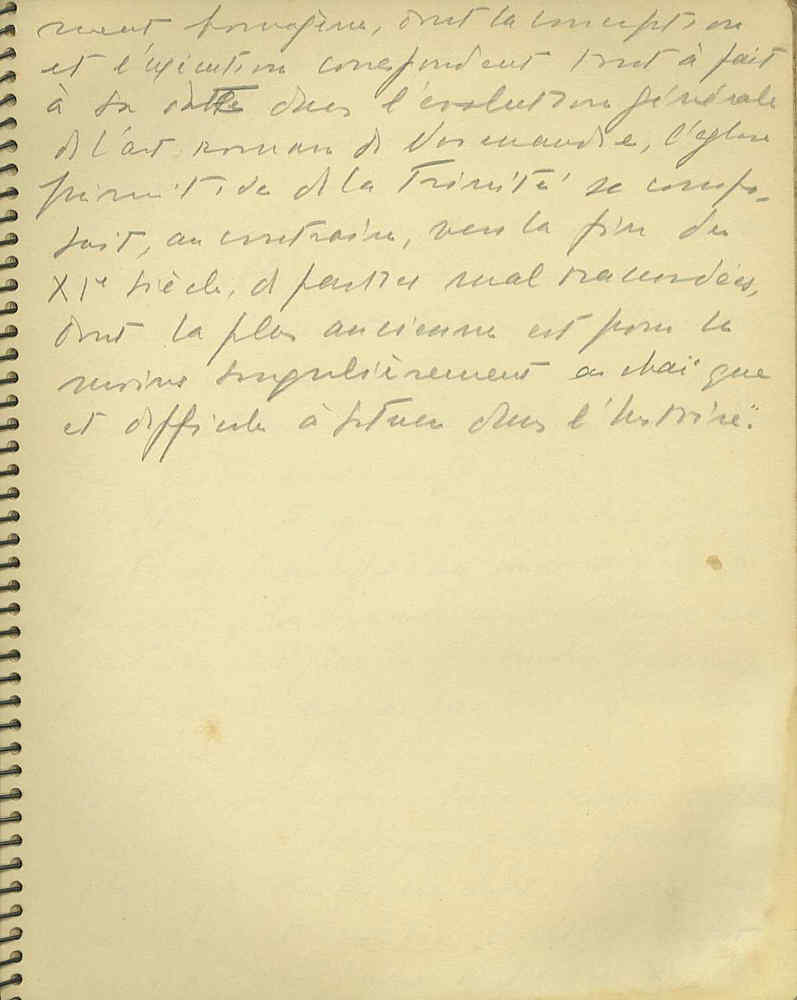 ment homogène, dont la conception
et l'exécution correspondent tout à fait
à sa date dans l'évolution générale
de l'art roman de Normandie, l'église
primitive de la Trinité se compo-
sait, au contraire, vers la fin du
XIe siècle, de parties mal raccordées,
dont la plus ancienne est pour le
moins singulièrement archaïque
et difficile à situer dans l'histoire".